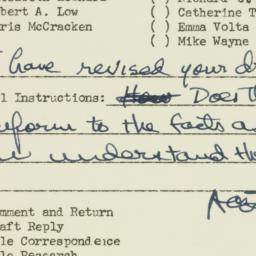 bert A. Low ( ) Catherine T
ris McCracken ( ) Emma Volta
( ) Mike Wayne
I have revised your d
l Instructions: How Does th
nform to the facts a
u understand th
mment and Return
aft Reply
le Correspondence
le Research